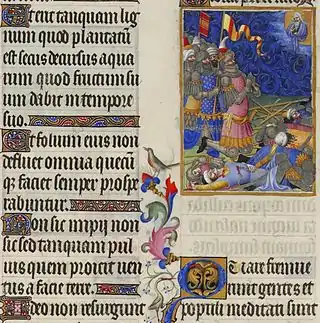 Et erit tanquam lig
num quod plantatũ
est secus decursus aqua
rum quod fructum su
um dabit in tempore
suo.
Et folium eius non
defluet omnia quecũ
q faciet semper prospe
rabuntur.
Non sic impij non
sic sed tanquam pul
uis quem proicit uen
tus a facie terre.
Ideo non resurgunt
Quare fremue
runt gentes et
populi meditati sunt